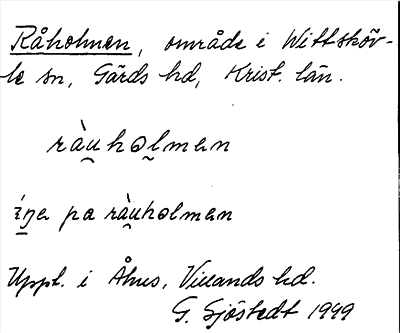 Råholmen, område i Wittsköv-
le sn, Gärds hd, Krist. län.
ràu̯holmen
íŋa pa ràu̯holmen
Uppt. i Åhus, Villands hd.
G. Sjöstedt 1999